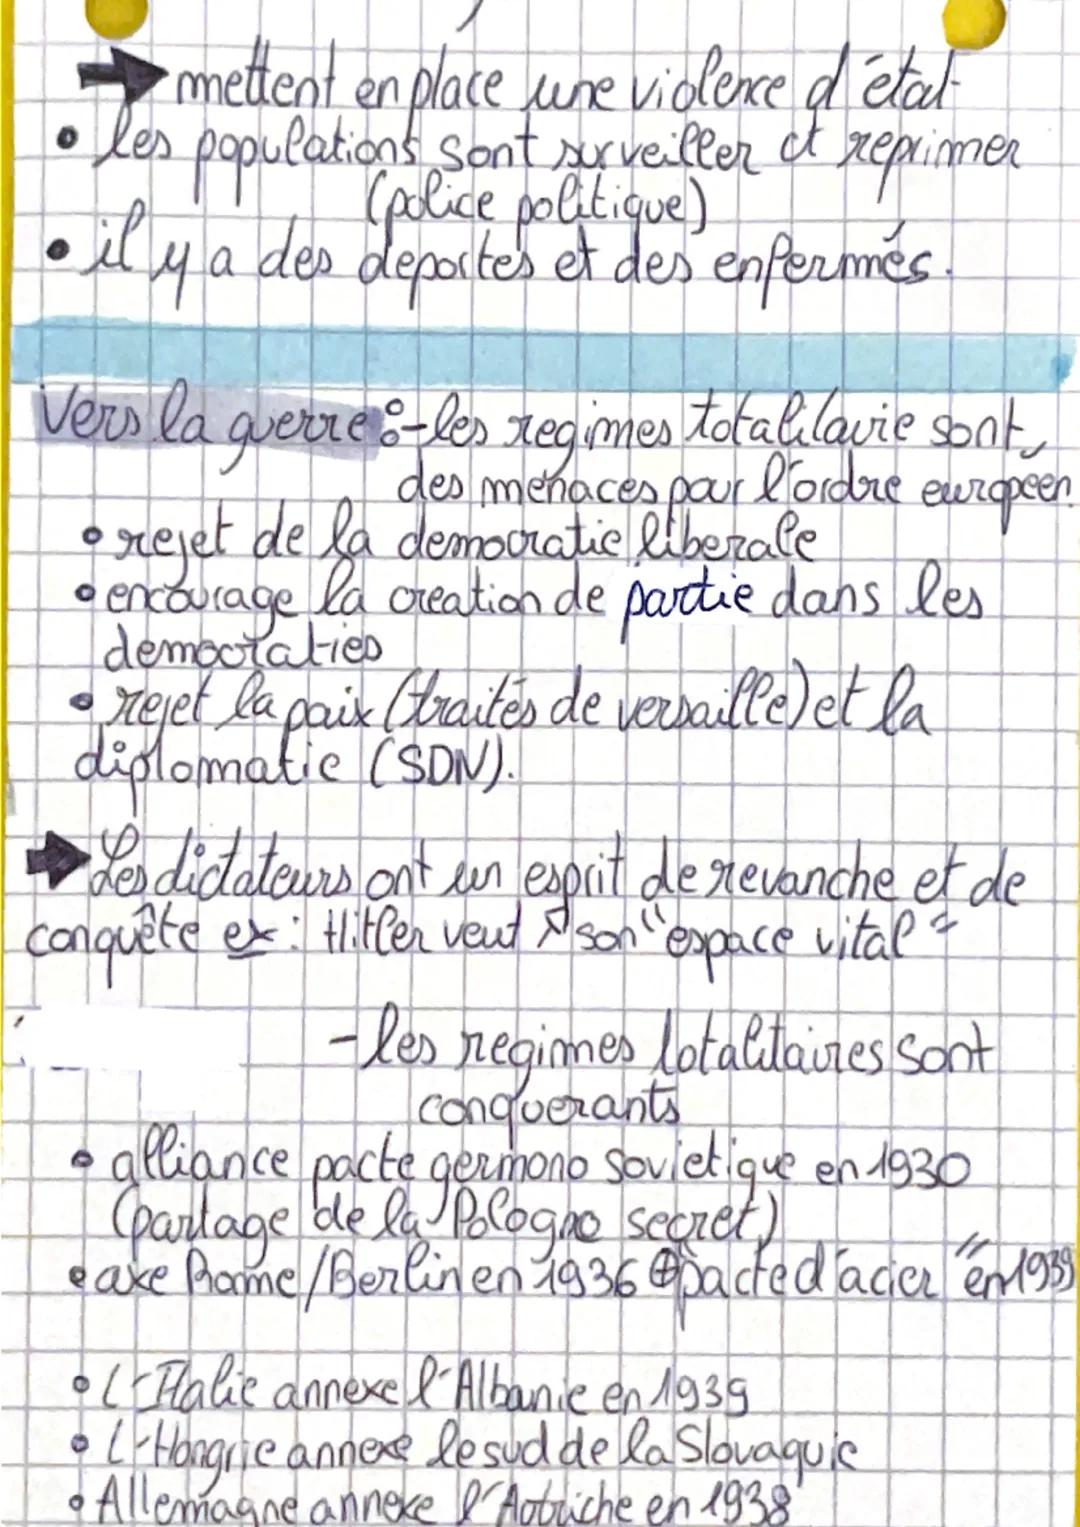 → mettent en place une violence d'état
• les populations sont surveiller et reprimer
(police politique)
• il y a des deportés et des enfermés.
Vers la guerre : - les regimes totalitavie sont
des menaces pour l'ordre européen.
• rejet de la democratie liberale
• encourage la creation de partie dans les
democraties
• rejet la paix (traités de versaille) et la
diplomatie (SDN).
→ Les dictateurs ont un esprit de revanche et de
conquête ex : Hitler veut ↗ son "espace vital"
- les regimes totalitaires sont
conquerants
• alliance pacte germano sovietique en 1930
(partage de la Pologne secret)
• axe Rome/Berlin en 1936 ⊕ pacte d'acier" en 1939
• L'Italie annexe l'Albanie en 1939
• L'Hongrie annexe le sud de la Slovaquie
• Allemagne annexe l'Autriche en 1938